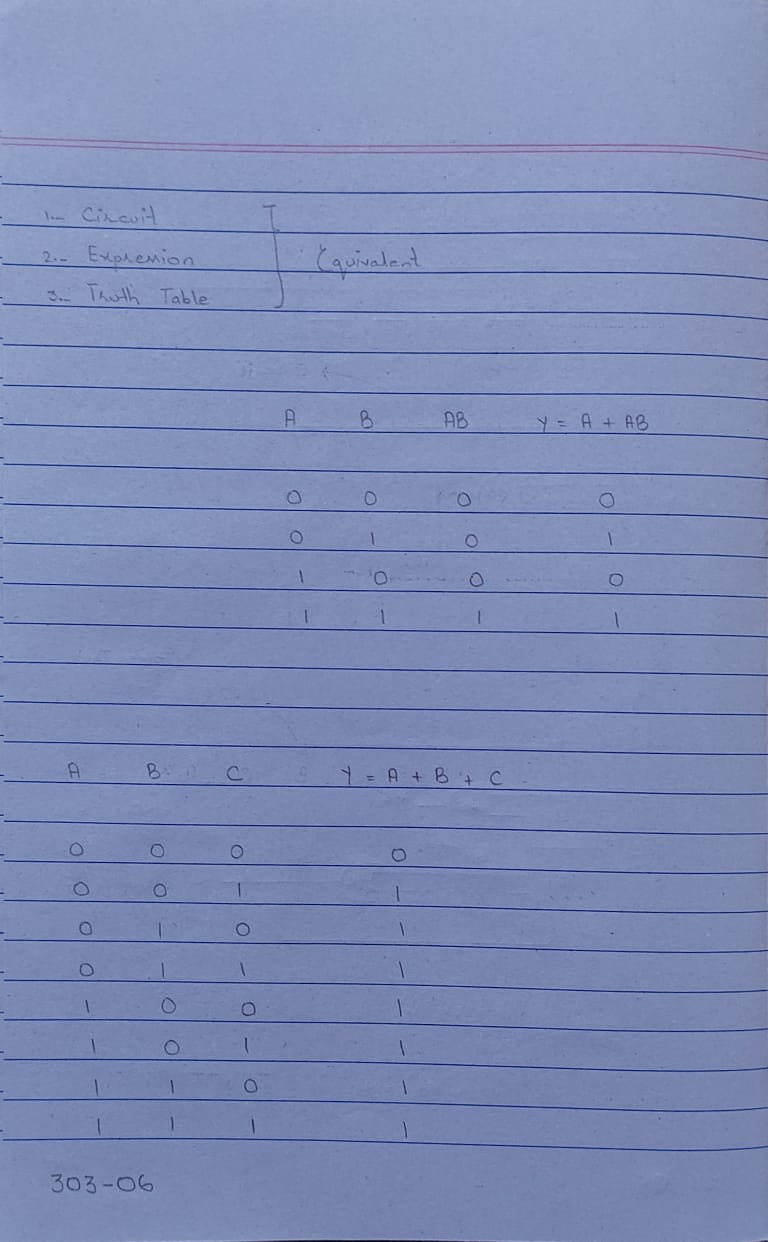 1.- Circuit
2.- Expression
3.- Truth Table
Equivalent
A B AB Y = A + AB
0 0 0 0
0 1 0 1
1 0 0 0
1 1 1 1
A B C Y = A + B + C
0 0 0 0
0 0 1 1
0 1 0 1
0 1 1 1
1 0 0 1
1 0 1 1
1 1 0 1
1 1 1 1
303-06